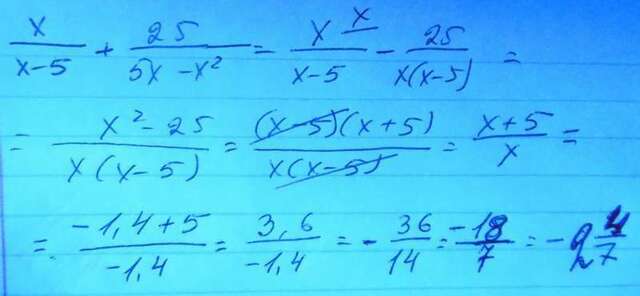 x/(x-5) + 25/(5x-x²) = x^x/(x-5) - 25/(x(x-5)) =
= (x²-25)/(x(x-5)) = ((x-5)(x+5))/(x(x-5)) = (x+5)/x =
= (-1,4+5)/(-1,4) = 3,6/(-1,4) = -36/14 = -18/7 = -2 4/7